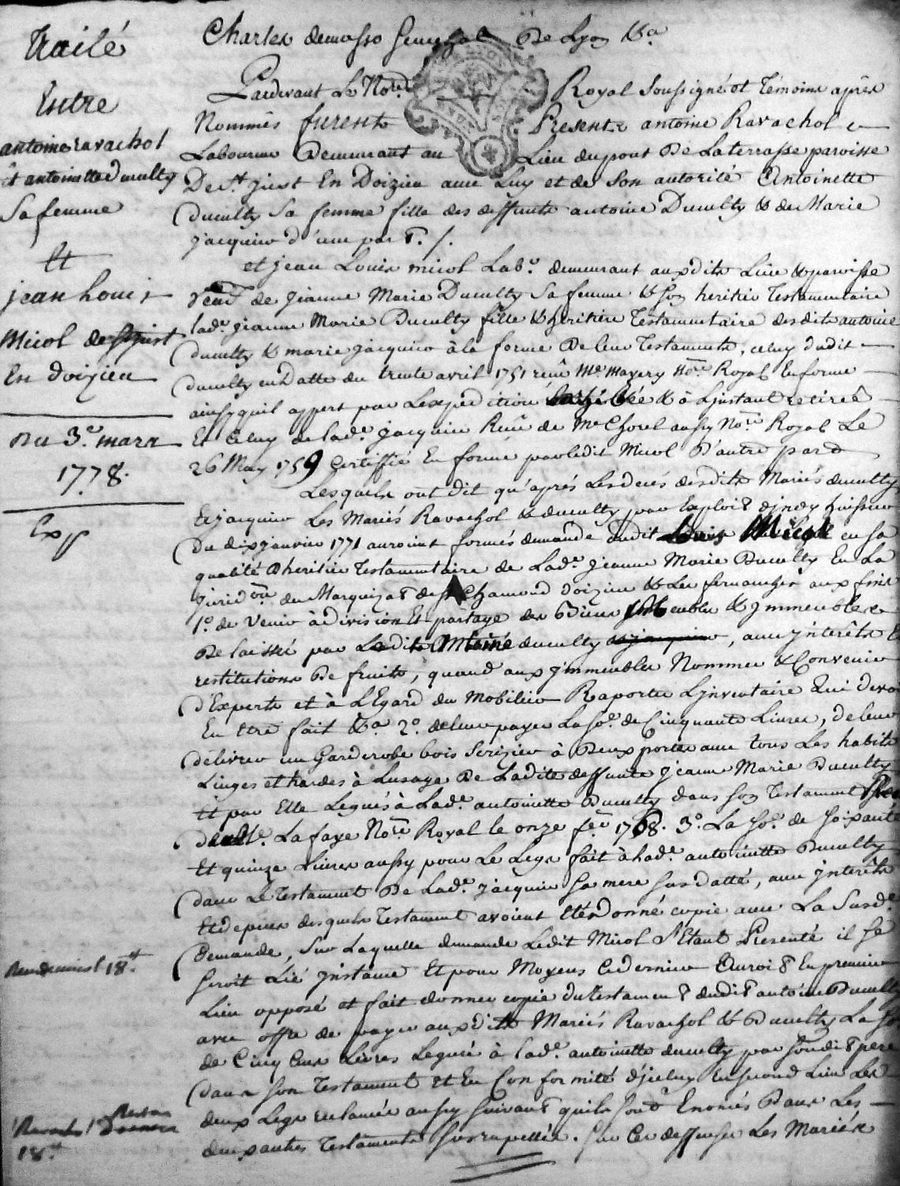 Traité
Entre
antoine ravachol
et antoinette ducully
Sa femme
Et
jean Louis
Micol de St just
En doizieu
Du 3e mars
1778.
Exp
Charles demasso Senechal de Lyon &a
Pardevant Le Nore Royal Soussigné et Témoins après
Nommés furent Presents antoine Ravachol
Laboureur Demeurant au Lieu du pont De Laterrasse paroisse
De St just En Doizieu avec Luy et de Son autorité Antoinette
Ducully Sa femme fille des deffunts antoine Ducully & de Marie
jacquier d'une part ./.
et jean Louis micol Labr demeurant auxdits Lieu & paroisse
de jeanne Marie Ducully Sa femme & Son heritier Testamentaire
lade jeanne Marie Ducully fille & heritiere Testamentaire desdits antoine
ducully & marie jacquier à la forme De Leur Testaments, celuy dudit
ducully en datte du trente avril 1751 reçu Me Mayery Nore Royal En forme
ainsy quil appert par Lexpedition & à Linstant retirée
Et Celuy de lade jacquier Reçu de Me Chorel aussy Nore Royal Le
26 May 1759 Certiffié En forme par ledit Micol D'autre part
Lesquels ont dit qu'après Les deces desdits Mariés ducully
& jacquier Les Mariés Ravachol & ducully, par Exploit huissier
Du dix janvier 1771 auroient formés demande audit Louis Micol en sa
qualité D'heritier Testamentaire de Lade jeanne Marie Ducully En La
juridon du Marquizat de St Chamond doizieu & Les farnanches aux fins
1o. de Venir à division Et partage des Biens Meubles & jmmeubles
De laissés par Ledit Antoine ducully, avec jnterêts Et
restitutions De fruits, quand aux jmmeubles Nommer & Convenir
d'Experts et à L'Egard du Mobilier Raporter Linventaire Qui devoit
En Etre fait &a 2o. de leur payer La Se de Cinquante Livres, de leur
délivrer un Garderobe bois Serizier à Deux portes avec tous Les habits
Linges et hardes à Lusage De Ladite deffunte jeanne Marie Ducully
Et par Elle Legués à Lade antoinette Ducully dans son Testament
Lafaye Nore Royal le onze fer 1768. 3o. La Se. de Soixante
Et quinze Livres aussy pour Le Legs fait à Lade antoinette Ducully
dans Le Testament De Lade jacquier Sa mere Susdatté, avec jnterêts
Et depens desquels Testament avoient Eté donné copie avec La Susde
Demande, Sur Laquelle demande Ledit Micol S'étant Presenté il Se
Seroit Lié jnstance Et pour Moyens Ce dernier Auroit En premier
Lieu opposé et fait donner copie du testament dudit antoine Ducully
avec offre de payer auxdits Mariés Ravachol & Ducully La Se
de Cinq Cens Livres Leguée à lade antoinette ducully par Sondit pere
dans son Testament et En Conformité djceluy, En Second Lieu Les
deux Legs Enoncés Dans Les
deux autres Testaments Susrappellés. Sur Ces deffenses Les Mariés
18st
18st